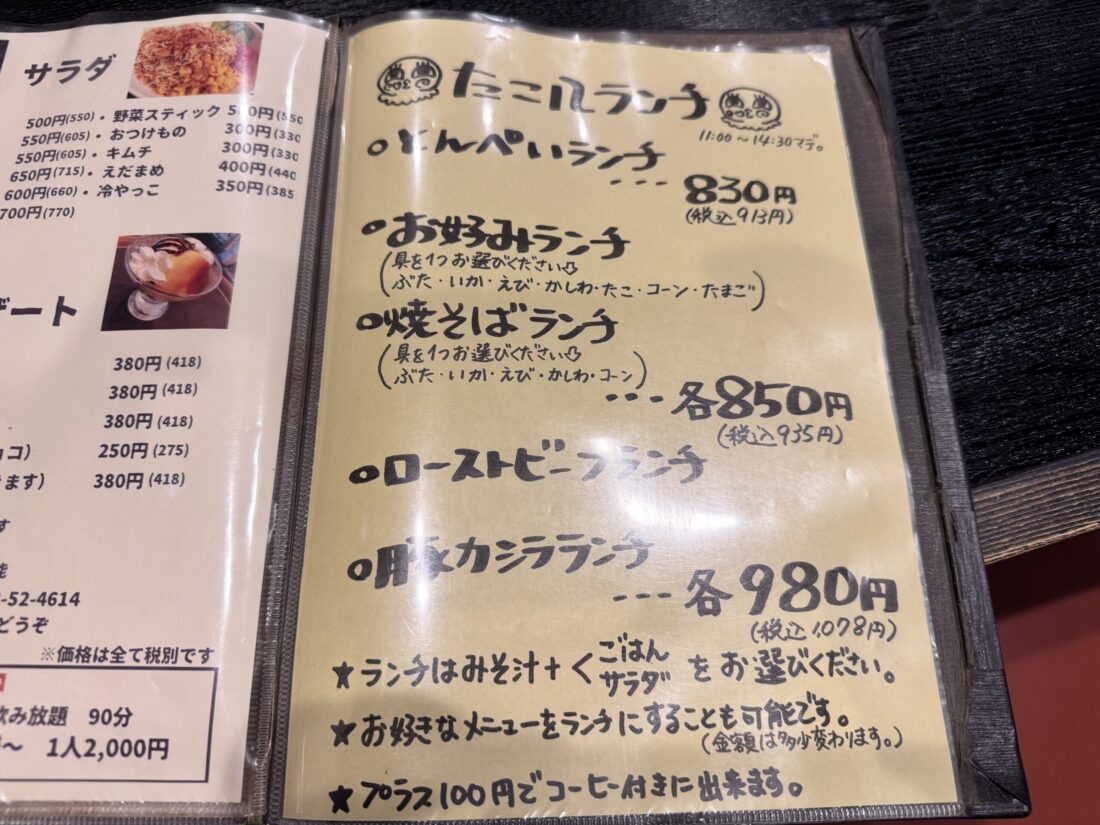 サラダ
500円(550)・野菜スティック 500円(550
550円(605)・おつけもの 300円(330
550円(605)・キムチ 300円(330
650円(715)・えだまめ 400円(440
600円(660)・冷やっこ 350円(385
700円(770)
ート
380円(418)
380円(418)
380円(418)
コ) 250円(275)
ます) 380円(418)
す
能
-52-4614
どうぞ
※価格は全て税別です
飲み放題 90分
〜 1人2,000円
たこ八ランチ
11:00〜14:30マデ。
とんぺいランチ
--- 830円
(税込913円)
お好みランチ
(具を1つお選びください
ぶた・いか・えび・かしわ・たこ・コーン・たまご)
焼そばランチ
(具を1つお選びください
ぶた・いか・えび・かしわ・コーン)
--- 各850円
(税込935円)
ローストビーフランチ
豚カシラランチ
--- 各980円
(税込1078円)
★ランチはみそ汁+<ごはん
サラダ をお選びください。
★お好きなメニューをランチにすることも可能です。
(金額は多少変わります。)
★プラス100円でコーヒー付きに出来ます。